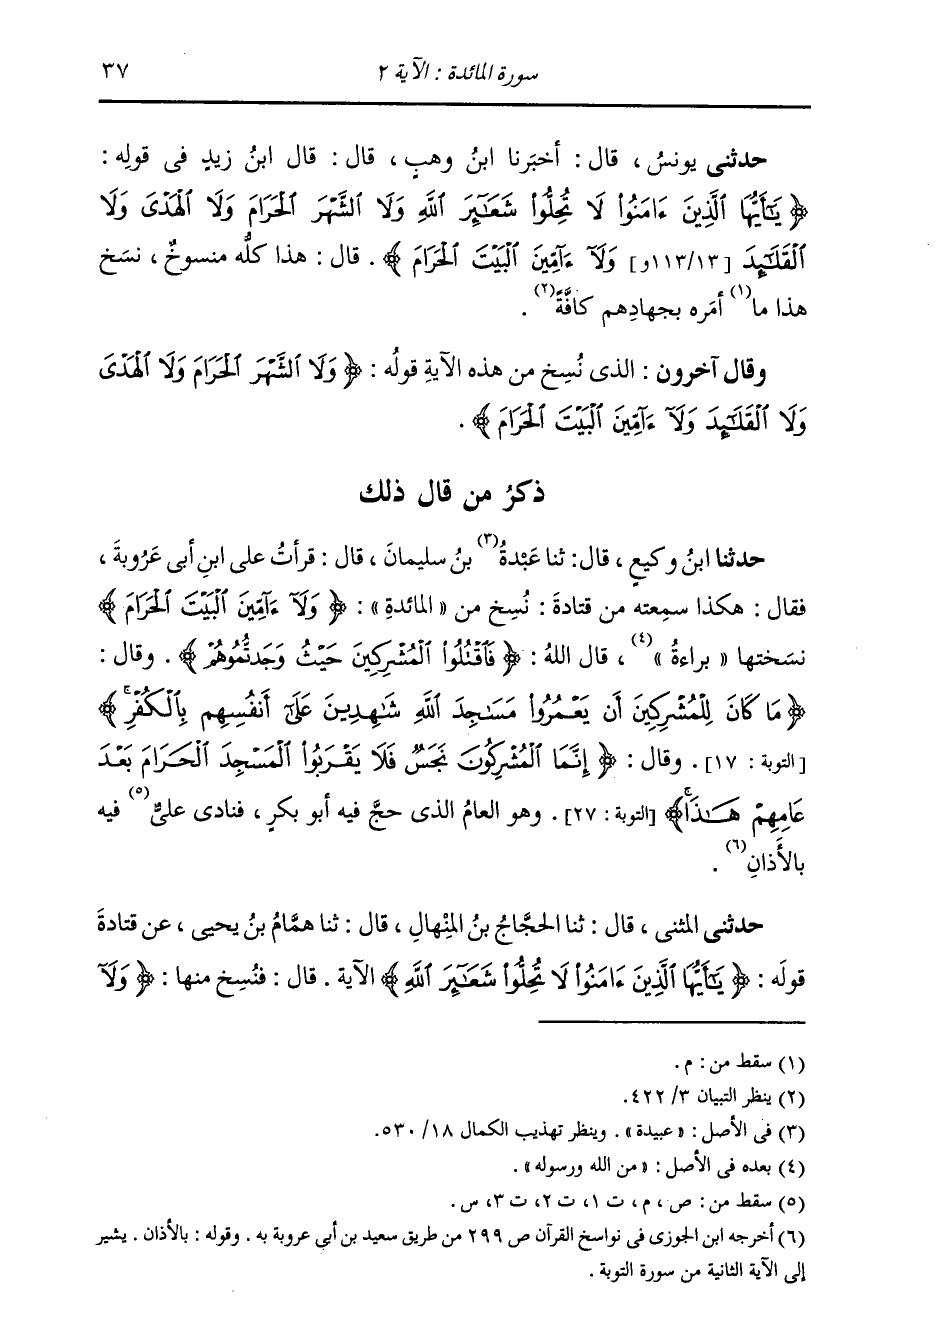 سورة المائدة : الآية ٢ ٣٧
حدثنى يونسُ ، قال : أخبَرنا ابنُ وهبٍ ، قال : قال ابنُ زيدٍ فى قولِه :
﴿ يَٰٓأَيُّهَا ٱلَّذِينَ ءَامَنُوا۟ لَا تُحِلُّوا۟ شَعَٰٓئِرَ ٱللَّهِ وَلَا ٱلشَّهْرَ ٱلْحَرَامَ وَلَا ٱلْهَدْىَ وَلَا
ٱلْقَلَٰٓئِدَ [١١٣/١٣و] وَلَآ ءَآمِّينَ ٱلْبَيْتَ ٱلْحَرَامَ ﴾ . قال : هذا كلُّه منسوخٌ ، نسَخ
هذا ما(١) أمَره بجهادِهم كافَّةً(٢) .
وقال آخرون : الذى نُسِخ من هذه الآيةِ قولُه : ﴿ وَلَا ٱلشَّهْرَ ٱلْحَرَامَ وَلَا ٱلْهَدْىَ
وَلَا ٱلْقَلَٰٓئِدَ وَلَآ ءَآمِّينَ ٱلْبَيْتَ ٱلْحَرَامَ ﴾ .
ذكرُ من قال ذلك
حدثنا ابنُ وكيعٍ ، قال : ثنا عَبْدةُ(٣) بنُ سليمانَ ، قال : قرأتُ على ابنِ أبى عَرُوبةَ ،
فقال : هكذا سمِعته من قتادةَ : نُسِخ من « المائدةِ » : ﴿ وَلَآ ءَآمِّينَ ٱلْبَيْتَ ٱلْحَرَامَ ﴾
نسَختها « براءةُ »(٤) ، قال اللهُ : ﴿ فَٱقْتُلُوا۟ ٱلْمُشْرِكِينَ حَيْثُ وَجَدتُّمُوهُمْ ﴾ . وقال :
﴿ مَا كَانَ لِلْمُشْرِكِينَ أَن يَعْمُرُوا۟ مَسَٰجِدَ ٱللَّهِ شَٰهِدِينَ عَلَىٰٓ أَنفُسِهِم بِٱلْكُفْرِ ۚ ﴾
[التوبة : ١٧] . وقال : ﴿ إِنَّمَا ٱلْمُشْرِكُونَ نَجَسٌ فَلَا يَقْرَبُوا۟ ٱلْمَسْجِدَ ٱلْحَرَامَ بَعْدَ
عَامِهِمْ هَٰذَا ۚ ﴾ [التوبة : ٢٧] . وهو العامُ الذى حجَّ فيه أبو بكرٍ ، فنادى علىٌّ(٥) فيه
بالأَذانِ(٦) .
حدثنى المثنى ، قال : ثنا الحجَّاجُ بنُ المِنْهالِ ، قال : ثنا همَّامُ بنُ يحيى ، عن قتادةَ
قولَه : ﴿ يَٰٓأَيُّهَا ٱلَّذِينَ ءَامَنُوا۟ لَا تُحِلُّوا۟ شَعَٰٓئِرَ ٱللَّهِ ﴾ الآية . قال : فنُسِخ منها : ﴿ وَلَآ
(١) سقط من : م .
(٢) ينظر التبيان ٣/ ٤٢٢ .
(٣) فى الأصل : « عبيدة » . وينظر تهذيب الكمال ١٨/ ٥٣٠ .
(٤) بعده فى الأصل : « من الله ورسوله » .
(٥) سقط من : ص ، م ، ت ١ ، ت ٢ ، ت ٣ ، س .
(٦) أخرجه ابن الجوزى فى نواسخ القرآن ص ٢٩٩ من طريق سعيد بن أبى عروبة به . وقوله : بالأذان . يشير
إلى الآية الثانية من سورة التوبة .